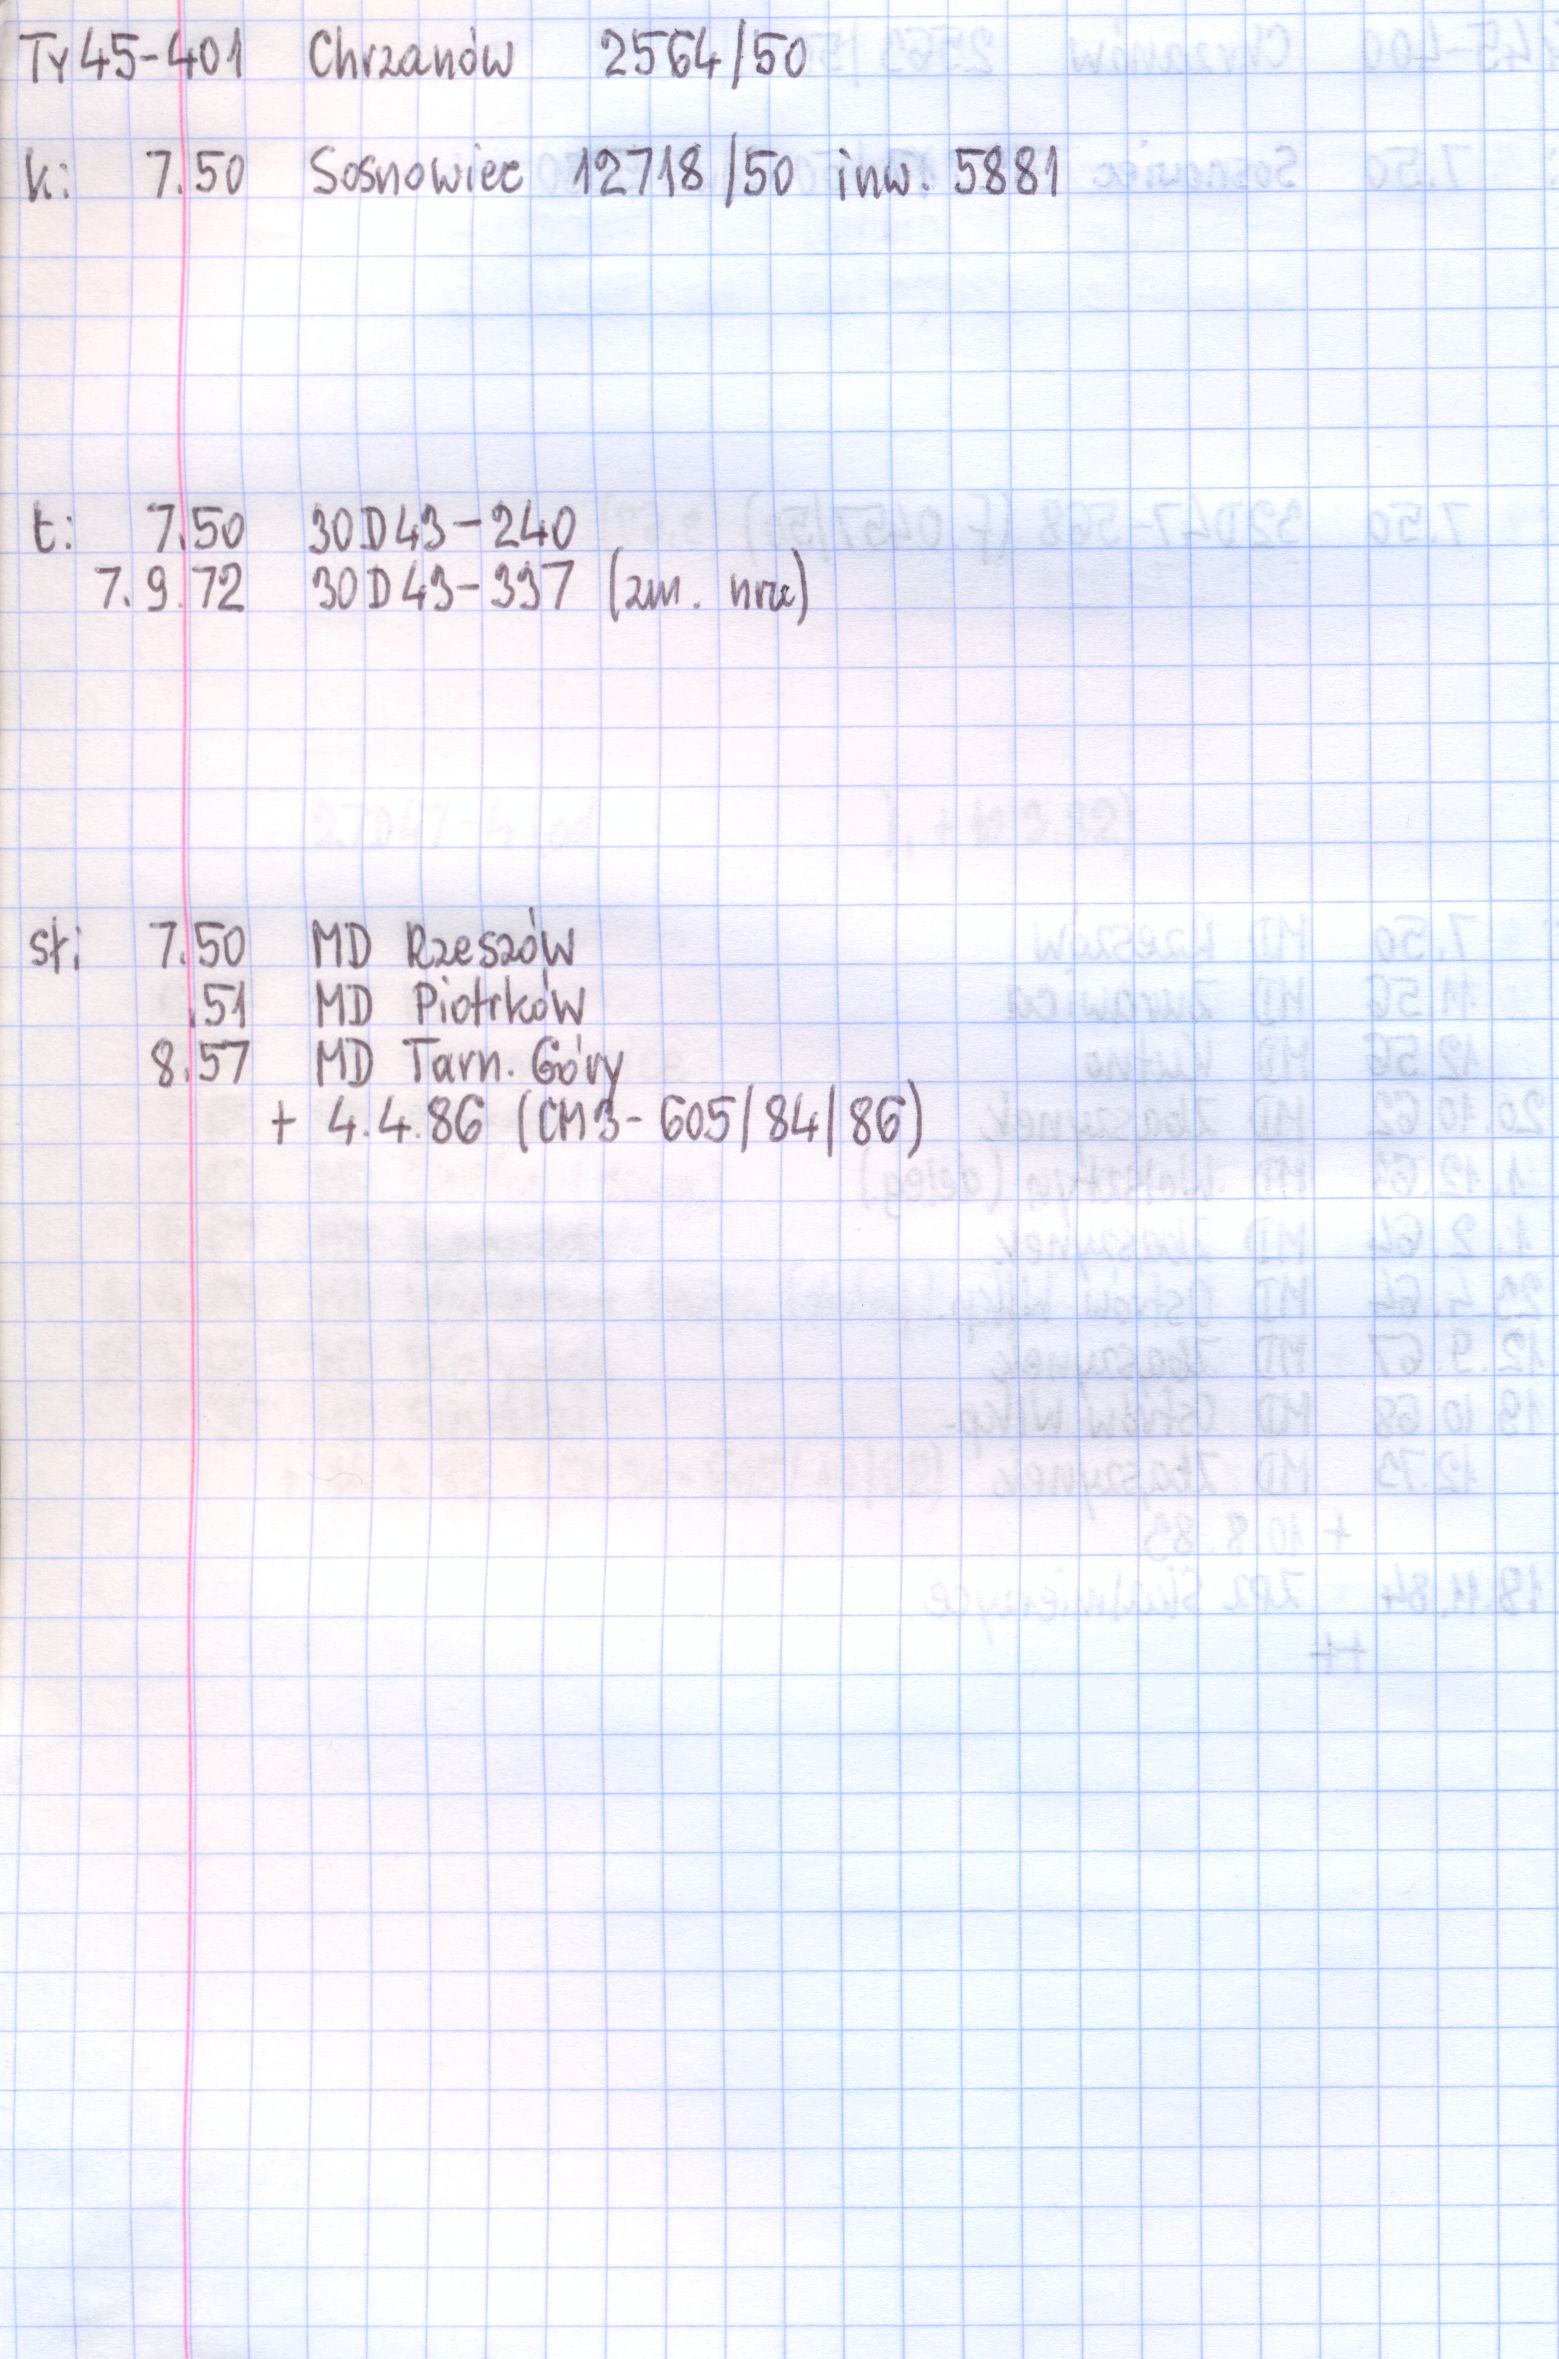 Ty45-401 Chrzanów 2564/50
k: 7.50 Sosnowiec 12718/50 inw. 5881
t: 7.50 30D43-240
7.9.72 30D43-337 (zm. nru)
st: 7.50 MD Rzeszów
.51 MD Piotrków
8.57 MD Tarn. Góry
+ 4.4.86 (CM3-605/84/86)